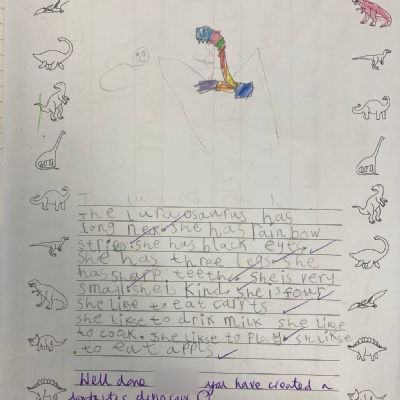 The luraosaurus has
long neck. she has rainbow
strips. she has black eyes.
She has three legs. she
has sharp teeth. She is very
small. she is kind. she is four
she like to eat carrts
she likse to drik milk she likse
to cook. she likse to play. sh likse
to eat appls
Well done you have created a
fantastic dinosaur